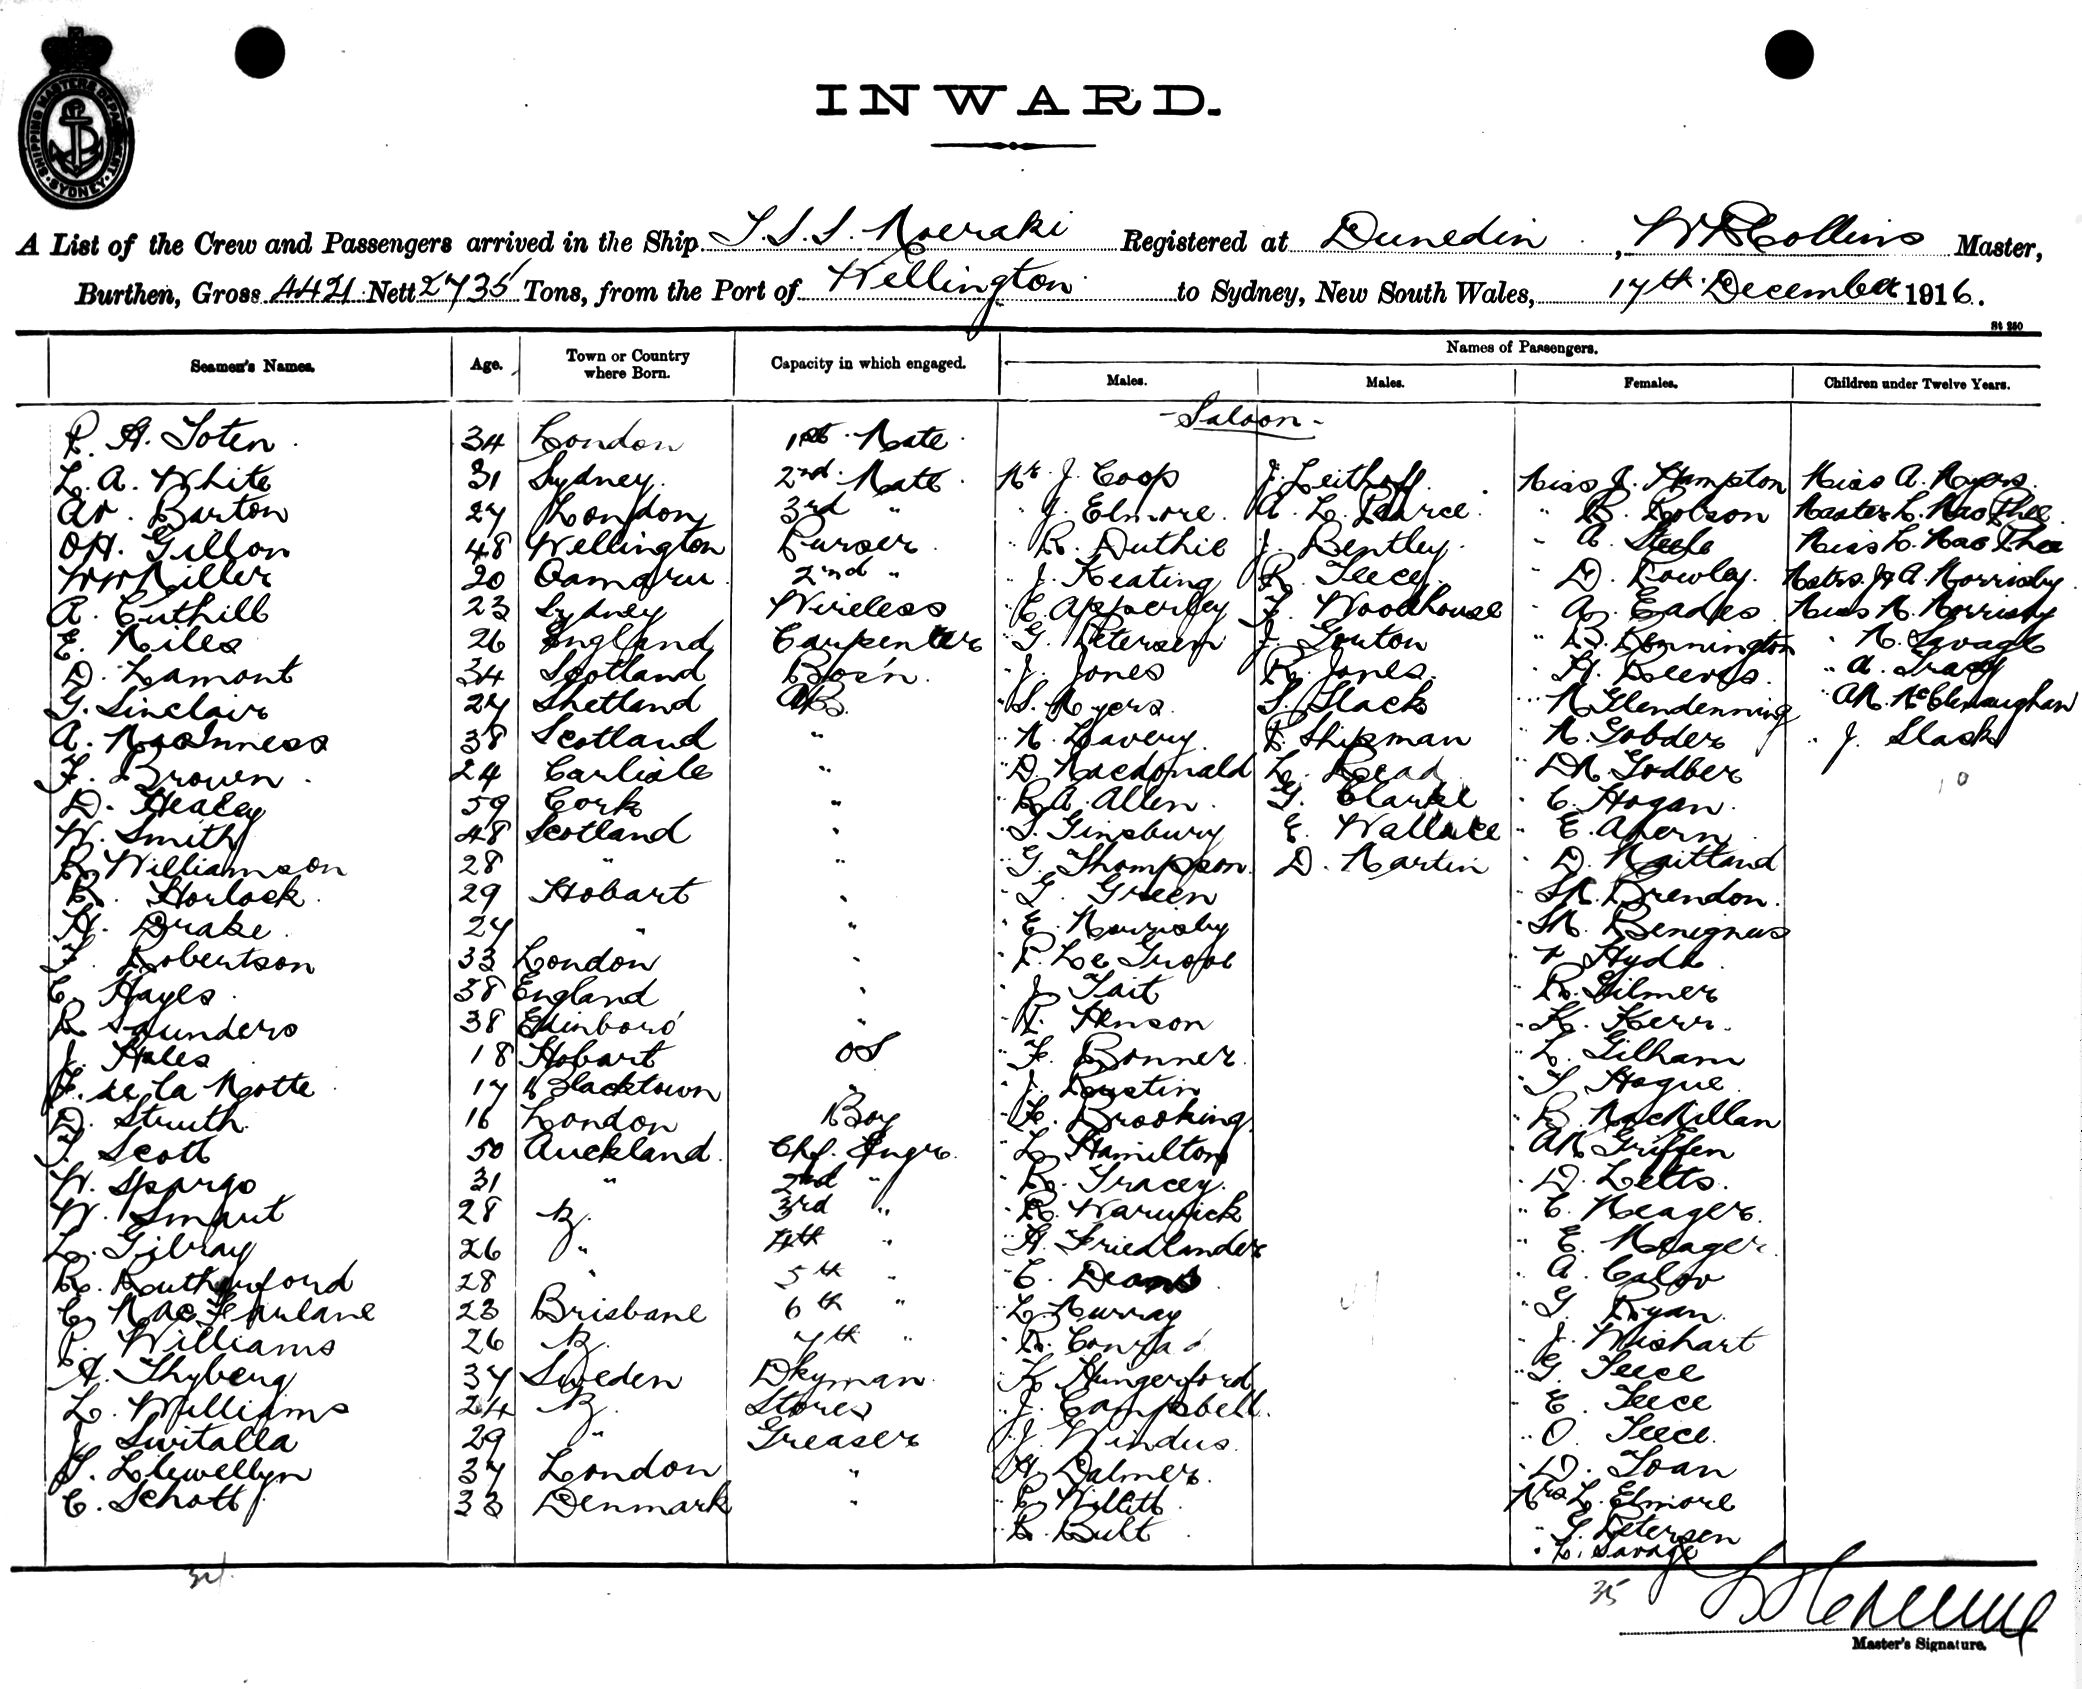 SHIPPING MASTERS DEPARTMENT
SYDNEY
INWARD.
A List of the Crew and Passengers arrived in the Ship T.S.S. Moeraki Registered at Dunedin, W B Collins Master,
Burthen, Gross 4421 Nett 2735 Tons, from the Port of Wellington to Sydney, New South Wales, 17th December 1916.
St 250
Seamen's Names. Age. Town or Country where Born. Capacity in which engaged. Names of Passengers.
Males. Males. Females. Children under Twelve Years.
- Saloon -
P. H. Toten 34 London 1st Mate
L. A. White 31 Sydney 2nd Mate Mr J. Coop J. Leithoff Miss J. Hampton Miss A. Myers
Ar. Barton 27 London 3rd " " J. Elmore A. L. Pearce " B. Robson Master L. MacPhee
OH. Gillon 48 Wellington Purser " R. Duthie J. Bentley " A. Steele Miss L. MacPhee
W W Miller 20 Oamaru 2nd " " J. Keating R. Teece " D. Rowley Mstrs J & A. Morrisby
A. Cuthill 23 Sydney Wireless " C. Apperley F. Woodhouse " A. Eades Miss M. Morrisby
E. Miles 26 England Carpenter " G. Petersen J. Gorton " B. Bonnington " M. Savage
D. Lamont 34 Scotland Bos'n. " J. Jones R. Jones " H. Reeves " A. Tracey
G. Sinclair 27 Shetland AB. " S. Myers S. Slack " M Glendenning " AM. McClenaughan
A. MacInness 38 Scotland " " M. Lavery P. Shipman " M. Gobder " J. Slack
F. Brown 24 Carlisle " " D. Macdonald L. Read " DM Godber
D. Healey 59 Cork " " R. A. Allen G. Clarke " C. Hogan
W. Smith 48 Scotland " " S. Ginsbury E. Wallace " E. Ahern
R. Williamson 28 " " " G. Thompson D. Martin " D. Maitland
R. Horlock 29 Hobart " " G. Green " SM. Brendon
H. Drake 27 " " " E. Morrisby " SM. Benignus
F. Robertson 33 London " " P. Le Grove " V Hyde
C. Hayes 38 England " " J. Tait " R. Gilmer
R Saunders 38 Edinboro' " " P. Henson " K. Kerr
J. Hales 18 Hobart OS " F. Bonner " L. Gilham
F. de la Motte 17 Blacktown " " J. Rustin " T Hogue
D. Struth 16 London Boy " F. Brooking " B. MacMillan
J. Scott 50 Auckland Chf. Engr. " L. Hamilton " AM Griffen
W. Spargo 31 " 2nd " " R. Tracey " D. Letts
W. Smart 28 NZ. 3rd " " R. Warwick " C. Meager
L. Gilray 26 " 4th " " H. Friedlander " E. Meager
R. Rutherford 28 " 5th " " C. Deans " A. Calov
C. MacFarlane 23 Brisbane 6th " " L. Murray " G. Ryan
P. Williams 26 NZ. 7th " " R. Conrad " J. Wishart
A. Thyberg 37 Sweden Dkyman " K. Hungerford " G. Teece
L. Williams 24 NZ. Stores " J. Campbell " E. Teece
J. Switalla 29 " Greaser " J. Windus " O. Teece
T. Llewellyn 37 London " " H. Dalmer " D. Toan
C. Schott 33 Denmark " " C. Willitt Mrs L. Elmore
" R. Bult " G. Petersen
" L. Savage
34 35
Master's Signature.